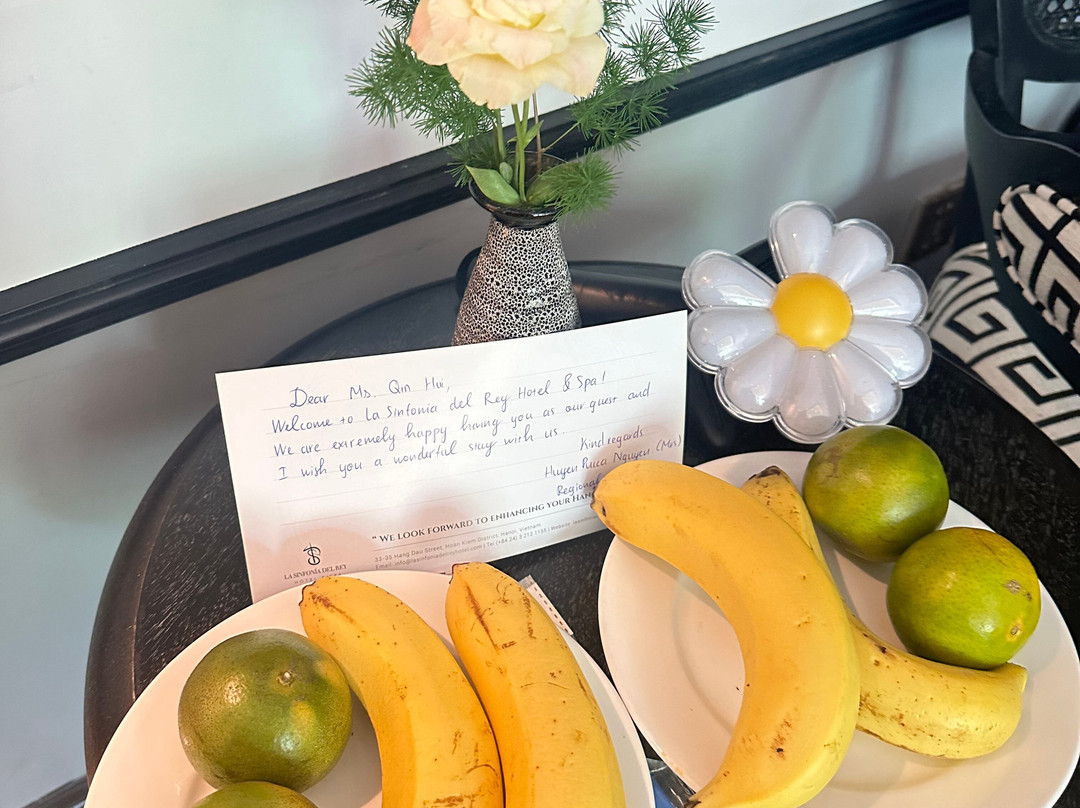 Dear Ms. Qin Hui,
Welcome to La Sinfonia del Rey Hotel & Spa!
We are extremely happy having you as our guest and
I wish you a wonderful stay with us.
Kind regards
Huyen Nguyen (Mrs)
Regional
" WE LOOK FORWARD TO ENHANCING YOUR
33-35 Hang Dau Street, Hoan Kiem District, Hanoi, Vietnam
Email: info@lasinfoniadelreyhotel.com | Tel (+84 24) 3 212 1155 | Website:
LA SINFONÍA DEL REY